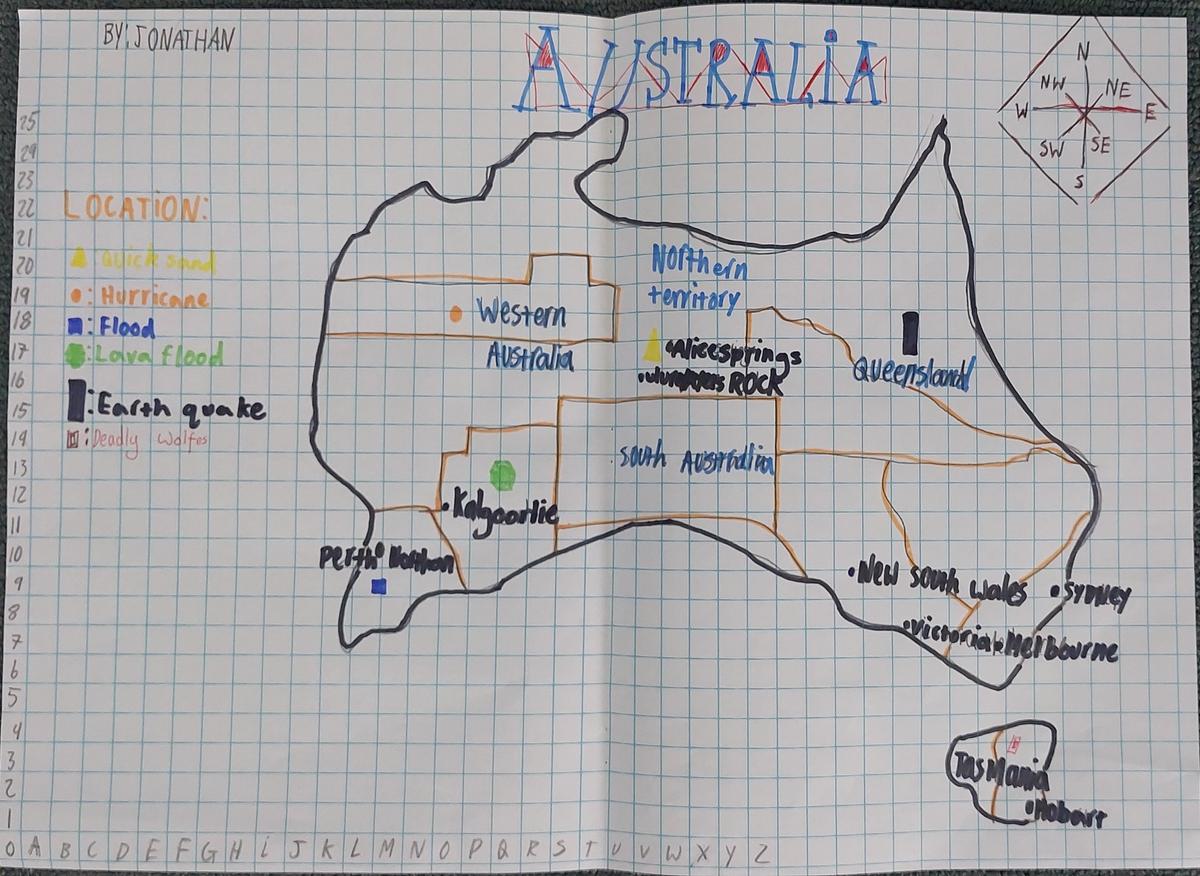 BY: JONATHAN
AUSTRALiA
N
NW NE
W E
SW SE
S
25
29
23
22
21
20
19
18
17
16
15
14
13
12
11
10
9
8
7
6
5
4
3
2
1
0 A B C D E F G H i J K L M N O P Q R S T U V W X Y Z
LOCATiON:
: Quick sand
: Hurricane
: Flood
: Lava flood
: Earth quake
: Deadly Wolfes
Northern
territory
Western
Australia
Alice springs
ROCK
Queensland
South Australia
Kalgoorlie
Perth
New south wales
Sydney
Victoria
Melbourne
TasMania
Hobart